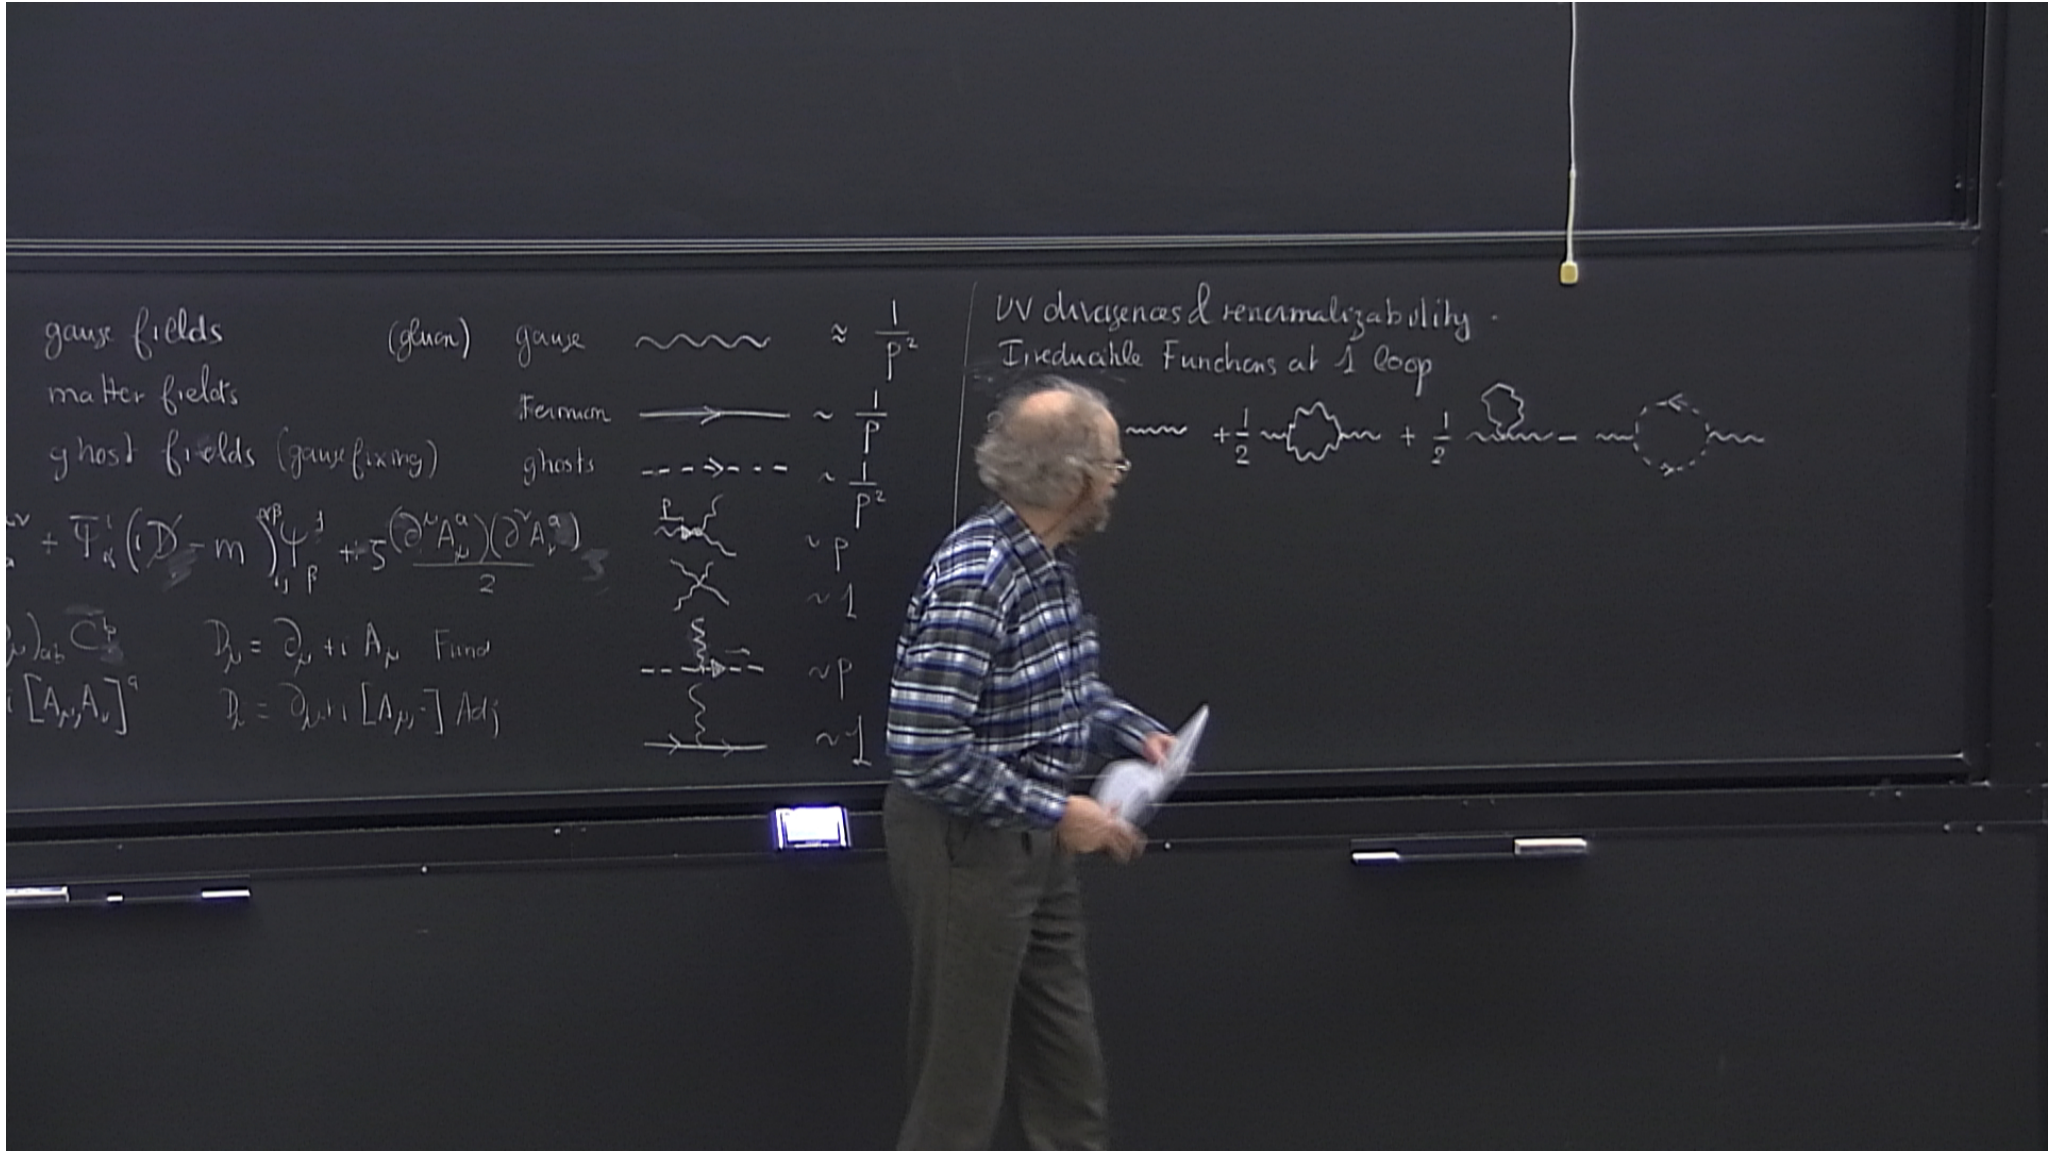 gauge fields
matter fields
ghost fields (gauge fixing)
+ Ψ̄^i_α (i D̸ - m)^{αβ}_{ij} Ψ^j_β + ξ (∂^μ A^a_μ)(∂^ν A^a_ν) / 2
)_{ab} C^b
D_μ = ∂_μ + i A_μ Fund
i [A_μ, A_ν]^a
D_μ = ∂_μ + i [A_μ, ·] Adj
(gluon) gauge ≈ 1/p²
Fermion ~ 1/p
ghosts ~ 1/p²
p ~ p
~ 1
~ p
~ 1
UV divergences & renormalizability.
Irreducible Functions at 1 loop
+ 1/2 + 1/2 -